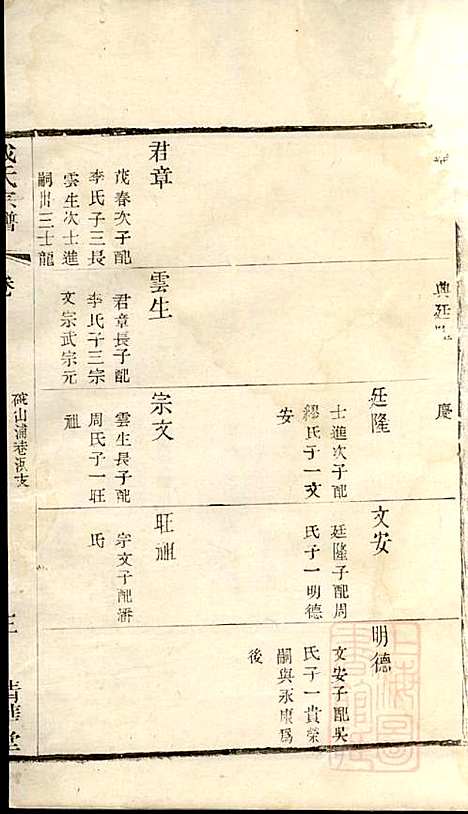 興廷
慶
廷隆
士進次子配
繆氏子一文
安
文安
廷隆子配周
氏子一明德
明德
文安子配吳
氏子一貴榮
嗣與永康爲
後
君章
茂春次子配
李氏子三長
雲生次士進
嗣出三士龍
雲生
君章長子配
李氏子三宗
文宗武宗元
宗文
雲生長子配
周氏子一旺
祖
旺祖
宗文子配潘
氏
氏宗譜
卷
山浦巷浜支
三
清華堂
上海圖書館藏